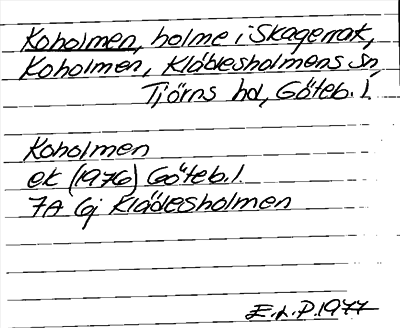 Koholmen, holme i Skagerrak,
Koholmen, Klädesholmens sn,
Tjörns hd, Göteb. l.
Koholmen
ek (1976) Göteb. l.
7A 6j Klädesholmen
E.L.P. 1977